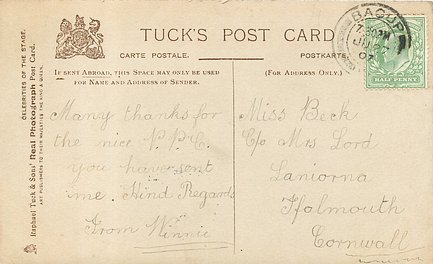 TUCK'S POST CARD
CARTE POSTALE. POSTKARTE.
IF SENT ABROAD, THIS SPACE MAY ONLY BE USED
FOR NAME AND ADDRESS OF SENDER.
(FOR ADDRESS ONLY.)
CELEBRITIES OF THE STAGE.
Raphael Tuck & Sons' Real Photograph Post Card.
ART PUBLISHERS TO THEIR MAJESTIES THE KING & QUEEN.
BACUP
7.30PM
JU 27
07
HALF PENNY
Many thanks for
the nice P.P.C.
you have sent
me. Kind Regards
From Winnie
Miss Beck
C/o Mrs Lord
Laniorna
Falmouth
Cornwall